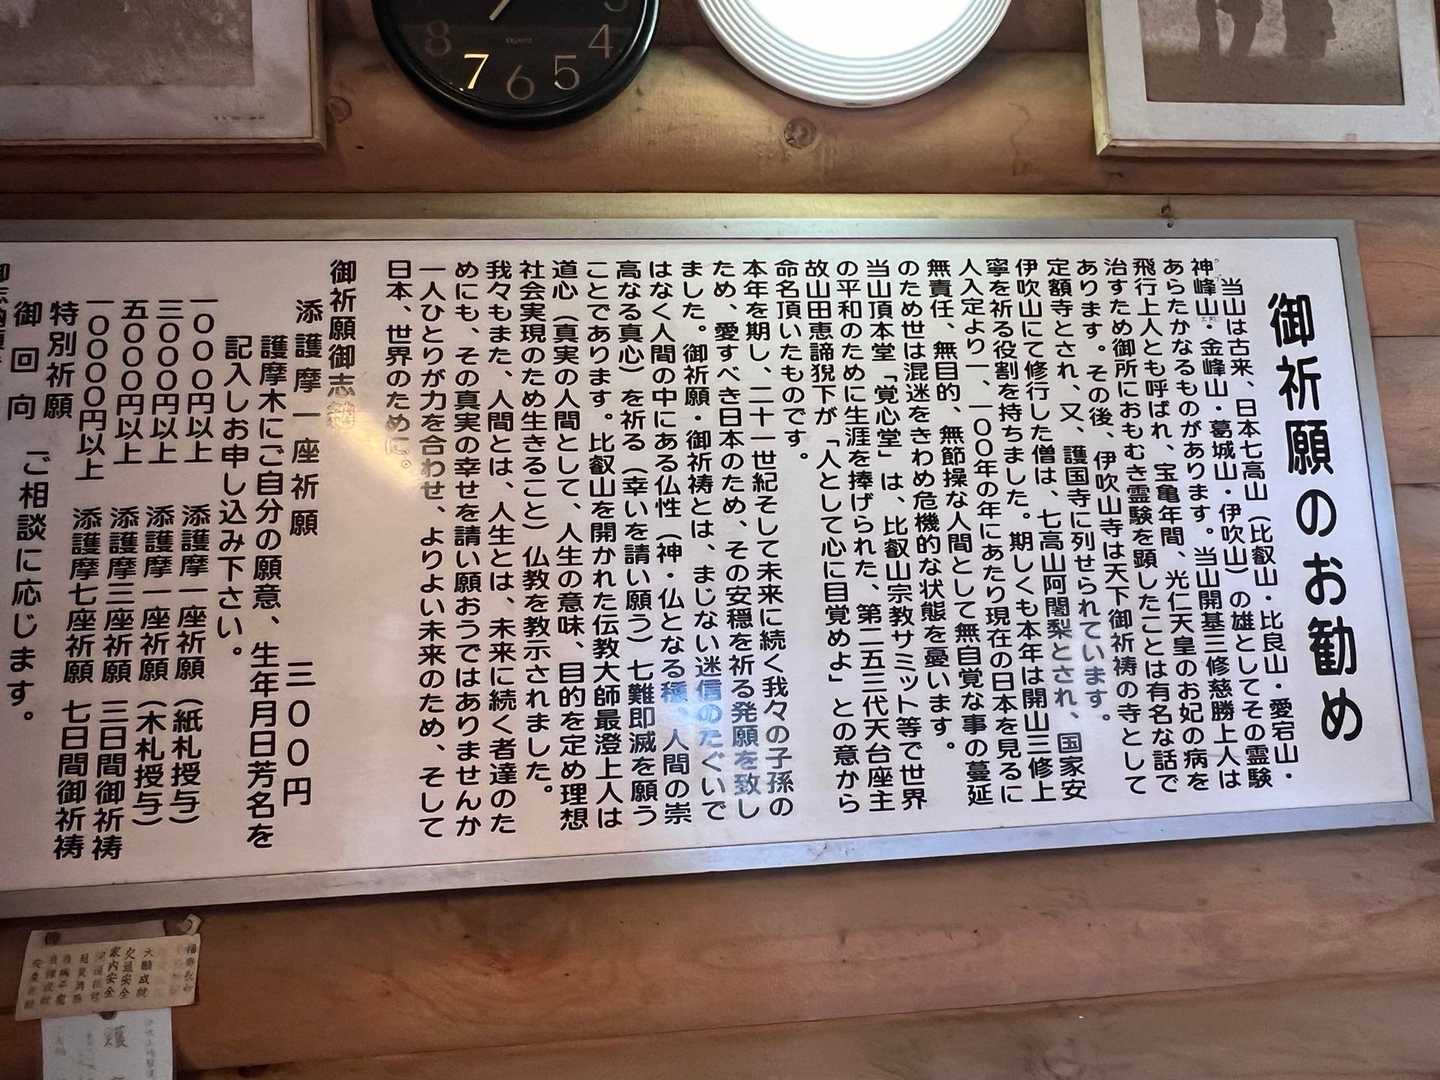 御祈願のお勧め
当山は古来、日本七高山（比叡山・比良山・愛宕山・
神峰山・金峰山・葛城山・伊吹山）の雄としてその霊験
あらたかなるものがあります。当山開基三修慈勝上人は
飛行上人とも呼ばれ、宝亀年間、光仁天皇のお妃の病を
治すため御所におもむき霊験を顕したことは有名な話で
あります。その後、伊吹山寺は天下御祈祷の寺として
定額寺とされ、又、護国寺に列せられています。
伊吹山にて修行した僧は、七高山阿闍梨とされ、国家安
寧を祈る役割を持ちました。期しくも本年は開山三修上
人入定より一、一００年の年にあたり現在の日本を見るに
無責任、無目的、無節操な人間として無自覚な事の蔓延
のため世は混迷をきわめ危機的な状態を憂います。
当山頂本堂「覚心堂」は、比叡山宗教サミット等で世界
の平和のために生涯を捧げられた、第二五三代天台座主
故山田恵諦猊下が「人として心に目覚めよ」との意から
命名頂いたものです。
本年を期し、二十一世紀そして未来に続く我々の子孫の
ため、愛すべき日本のため、その安穏を祈る発願を致し
ました。御祈願・御祈祷とは、まじない迷信のたぐいで
はなく人間の中にある仏性（神・仏となる種、人間の崇
高なる真心）を祈る（幸いを請い願う）七難即滅を願う
ことであります。比叡山を開かれた伝教大師最澄上人は
道心（真実の人間として、人生の意味、目的を定め理想
社会実現のため生きること）仏教を教示されました。
我々もまた、人間とは、人生とは、未来に続く者達のた
めにも、その真実の幸せを請い願おうではありませんか
一人ひとりが力を合わせ、よりよい未来のため、そして
日本、世界のために。
御祈願御志納
添護摩一座祈願 三００円
護摩木にご自分の願意、生年月日芳名を
記入しお申し込み下さい。
一０００円以上 添護摩一座祈願（紙札授与）
三０００円以上 添護摩一座祈願（木札授与）
五０００円以上 添護摩三座祈願 三日間御祈祷
一００００円以上 添護摩七座祈願 七日間御祈祷
特別祈願
御回向 「ご相談に応じます。
8 7 6 5 4
大願成就
交通安全
家内安全